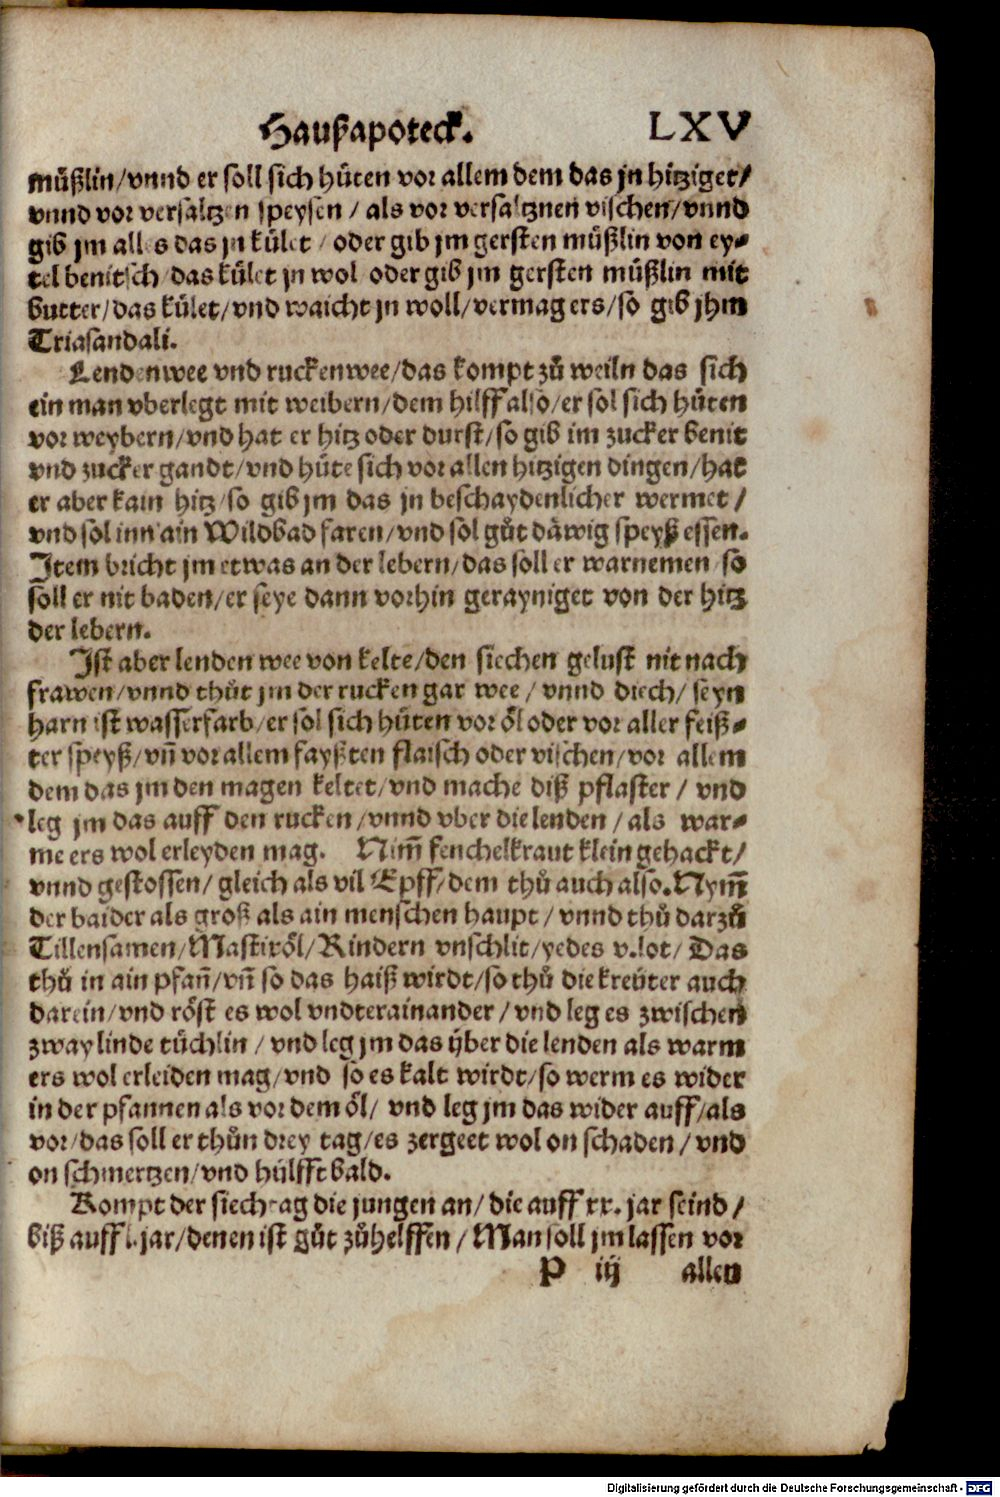 Haußapoteck. LXV
müßlin/vnnd er soll sich hüten vor allem dem das jn hitziget/
vnnd vor versaltzen speysen / als vor versaltznen vischen/vnnd
gib jm alles das jn kület / oder gib jm gersten müßlin von ey-
tel benitsch/das kület jn wol oder gib jm gersten müßlin mit
butter/das kület/vnd waicht jn woll/vermag ers/so gib jhm
Triasandali.
Lendenwee vnd ruckenwee/das kompt zů weiln das sich
ein man vberlegt mit weibern/dem hilff also/er sol sich hüten
vor weybern/vnd hat er hitz oder durst/so gib im zucker benit
vnd zucker gandt/vnd hüte sich vor allen hitzigen dingen/hat
er aber kain hitz/so gib jm das jn beschaydenlicher wermet /
vnd sol inn ain Wildbad faren/vnd sol gůt däwig speyß essen.
Item bricht jm etwas an der lebern/das soll er warnemen/so
soll er nit baden/er seye dann vorhin gerayniget von der hitz
der lebern.
Ist aber lenden wee von kelte/den siechen gelust nit nach
frawen/vnnd thůt jm der rucken gar wee / vnnd diech/ seyn
harn ist wasserfarb/er sol sich hüten vor öl oder vor aller feiß-
ter speyß/vñ vor allem fayßten flaisch oder vischen/vor allem
dem das jm den magen keltet/vnd mache diß pflaster / vnd
leg jm das auff den rucken/vnnd vber die lenden / als war-
me ers wol erleyden mag. Nim̃ fenchelkraut klein gehackt/
vnnd gestossen/ gleich als vil Epff/dem thů auch also. Nym̃
der baider als groß als ain menschen haupt / vnnd thů darzů
Tillensamen/Mastixöl/Rindern vnschlit/yedes v.lot/ Das
thů in ain pfañ/vñ so das haiß wirdt/so thů die kreüter auch
darein/vnd röst es wol vndterainander / vnd leg es zwischen
zway linde tüchlin / vnd leg jm das ÿber die lenden als warm
ers wol erleiden mag/vnd so es kalt wirdt/so werm es wider
in der pfannen als vor dem öl/ vnd leg jm das wider auff/als
vor/das soll er thůn drey tag/es zergeet wol on schaden / vnd
on schmertzen/vnd hülfft bald.
Kompt der siechtag die jungen an/ die auff xx. jar seind /
biß auff l. jar/denen ist gůt zůhelffen / Man soll jm lassen vor
P iij allen
Digitalisierung gefördert durch die Deutsche Forschungsgemeinschaft - DFG